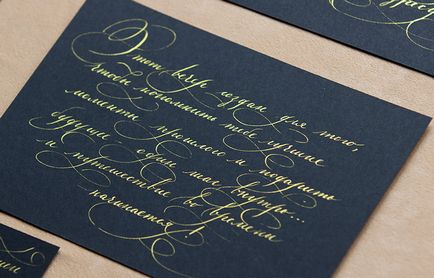 Этот вечер создан для того,
чтобы напомнить тебе лучшие
моменты прошлого и подарить
будущие... один шаг внутрь...
и путешествие во времени
начинается!